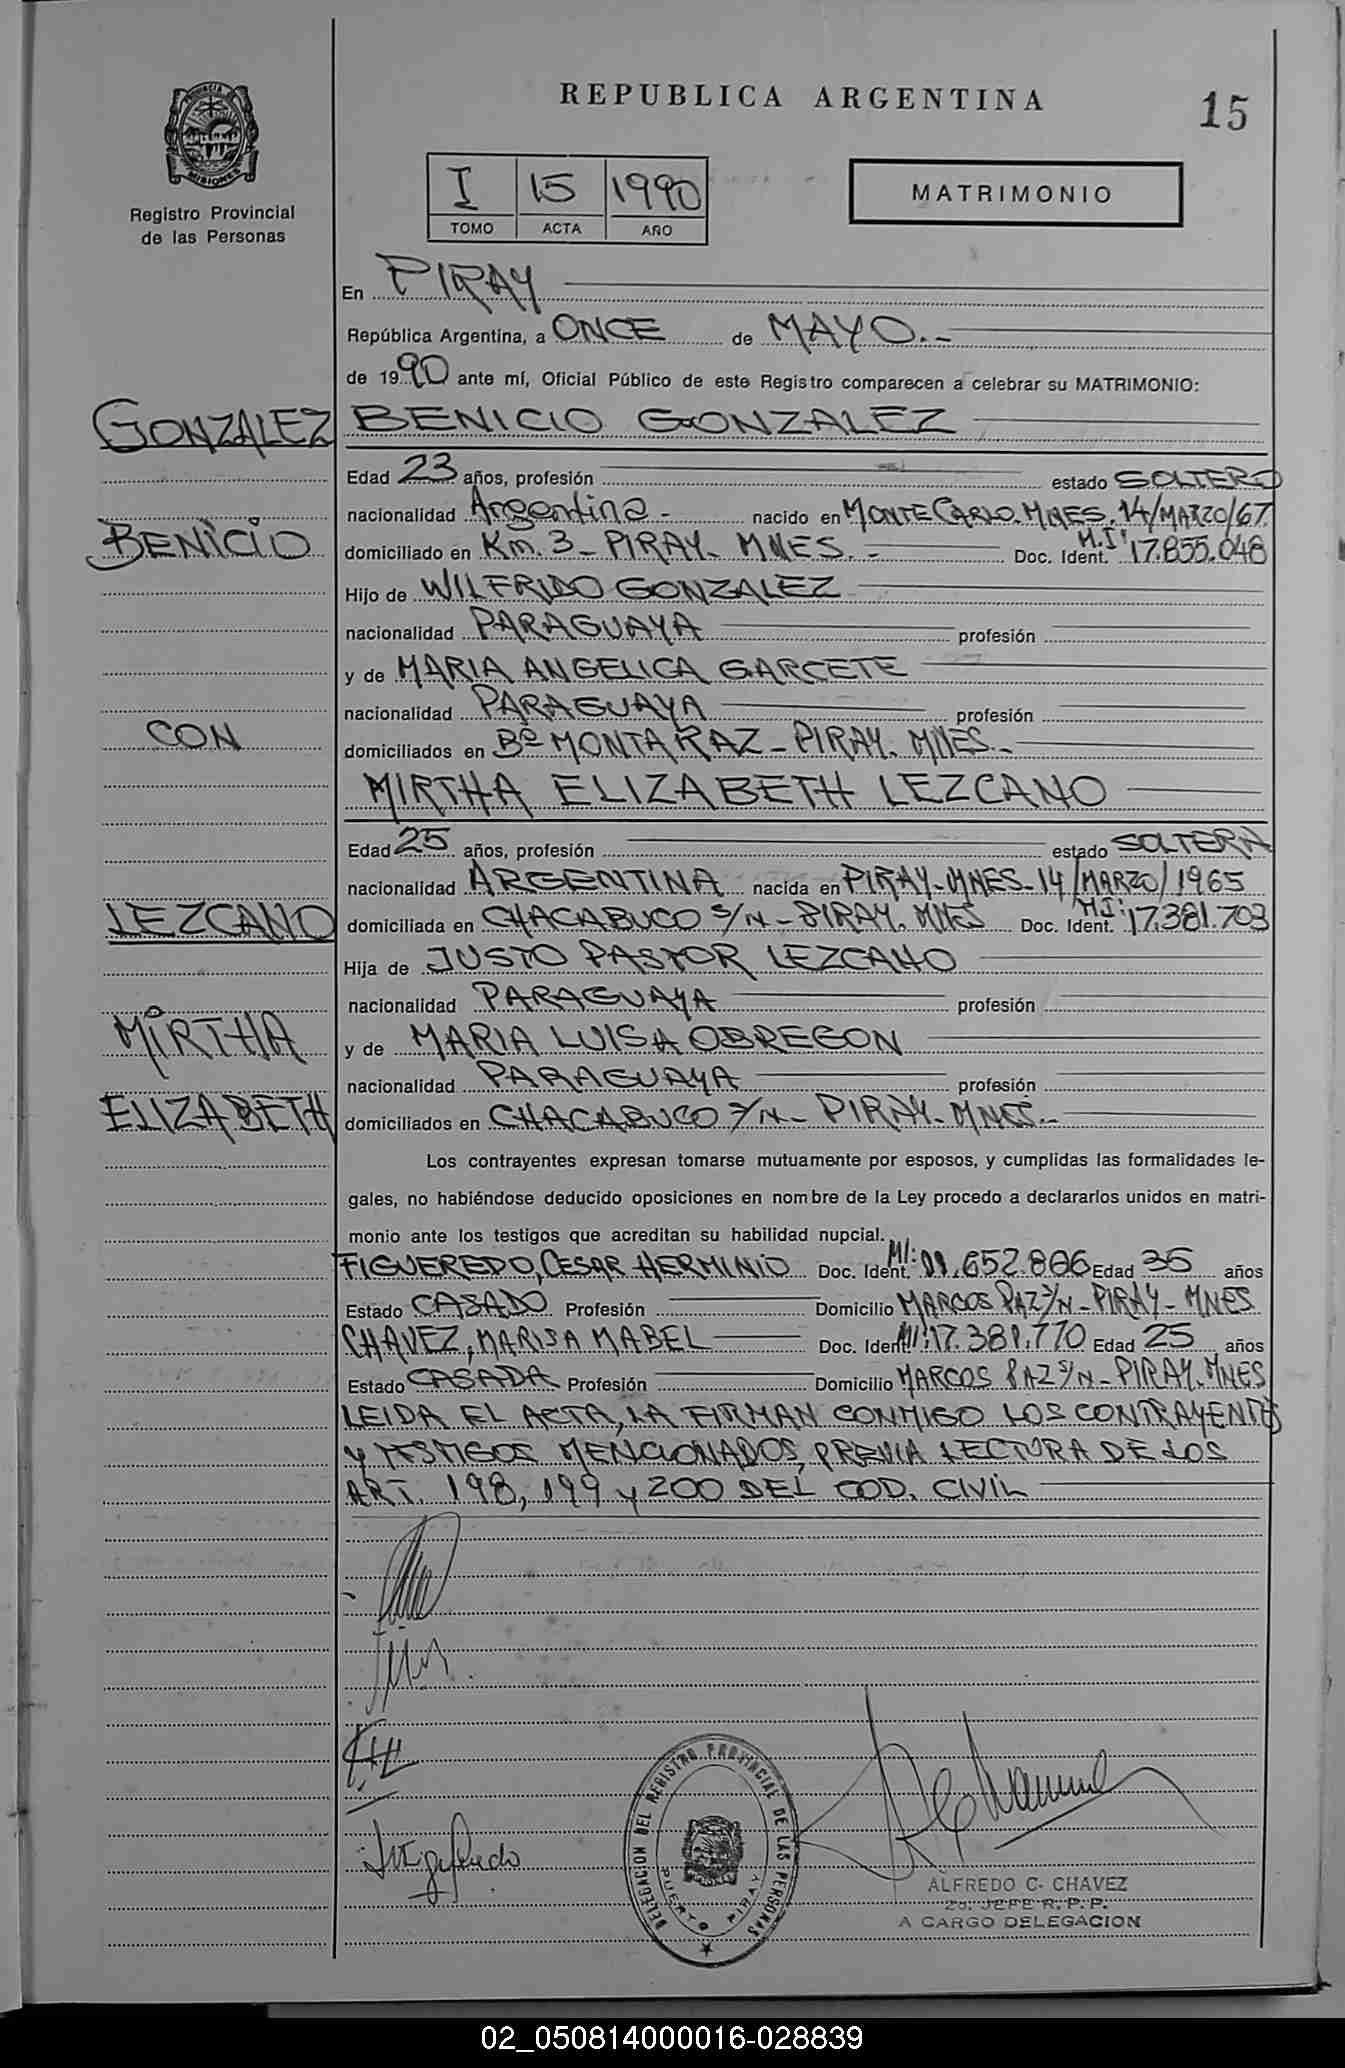 REPUBLICA ARGENTINA
15
PROVINCIA DE
MISIONES
Registro Provincial
de las Personas
I 15 1990
TOMO ACTA AÑO
MATRIMONIO
En PIRAY
República Argentina, a ONCE de MAYO.-
de 1990 ante mí, Oficial Público de este Registro comparecen a celebrar su MATRIMONIO:
GONZALEZ BENICIO GONZALEZ
Edad 23 años, profesión estado SOLTERO
nacionalidad Argentina - nacido en MONTE CARLO. MNES. 14/MARZO/67
BENICIO domiciliado en Km. 3 - PIRAY - MNES. - Doc. Ident. M.I: 17.855.048
Hijo de WILFRIDO GONZALEZ
nacionalidad PARAGUAYA profesión
y de MARIA ANGELICA GARCETE
nacionalidad PARAGUAYA profesión
CON domiciliados en Bº MONTARAZ - PIRAY. MNES.-
MIRTHA ELIZABETH LEZCANO
Edad 25 años, profesión estado SOLTERA
nacionalidad ARGENTINA nacida en PIRAY - MNES - 14/MARZO/1965
LEZCANO domiciliada en CHACABUCO S/N - PIRAY. MNES Doc. Ident. M.I: 17.381.703
Hija de JUSTO PASTOR LEZCANO
nacionalidad PARAGUAYA profesión
MIRTHA y de MARIA LUISA OBREGON
nacionalidad PARAGUAYA profesión
ELIZABETH domiciliados en CHACABUCO S/N - PIRAY - MNES.-
Los contrayentes expresan tomarse mutuamente por esposos, y cumplidas las formalidades le-
gales, no habiéndose deducido oposiciones en nombre de la Ley procedo a declararlos unidos en matri-
monio ante los testigos que acreditan su habilidad nupcial.
FIGUEREDO, CESAR HERMINIO Doc. Ident. MI: .652.866 Edad 35 años
Estado CASADO Profesión Domicilio MARCOS PAZ S/N - PIRAY - MNES
CHAVEZ, MARISA MABEL Doc. Ident. MI: 17.381.770 Edad 25 años
Estado CASADA Profesión Domicilio MARCOS PAZ S/N - PIRAY. MNES
LEIDA EL ACTA, LA FIRMAN CONMIGO LOS CONTRAYENTES
Y TESTIGOS MENCIONADOS, PREVIA LECTURA DE LOS
ART. 198, 199 y 200 DEL COD. CIVIL
DELEGACION DEL REGISTRO PROVINCIAL DE LAS PERSONAS
PUERTO PIRAY
ALFREDO C. CHAVEZ
2º. JEFE R. P. P.
A CARGO DELEGACION
02_050814000016-028839